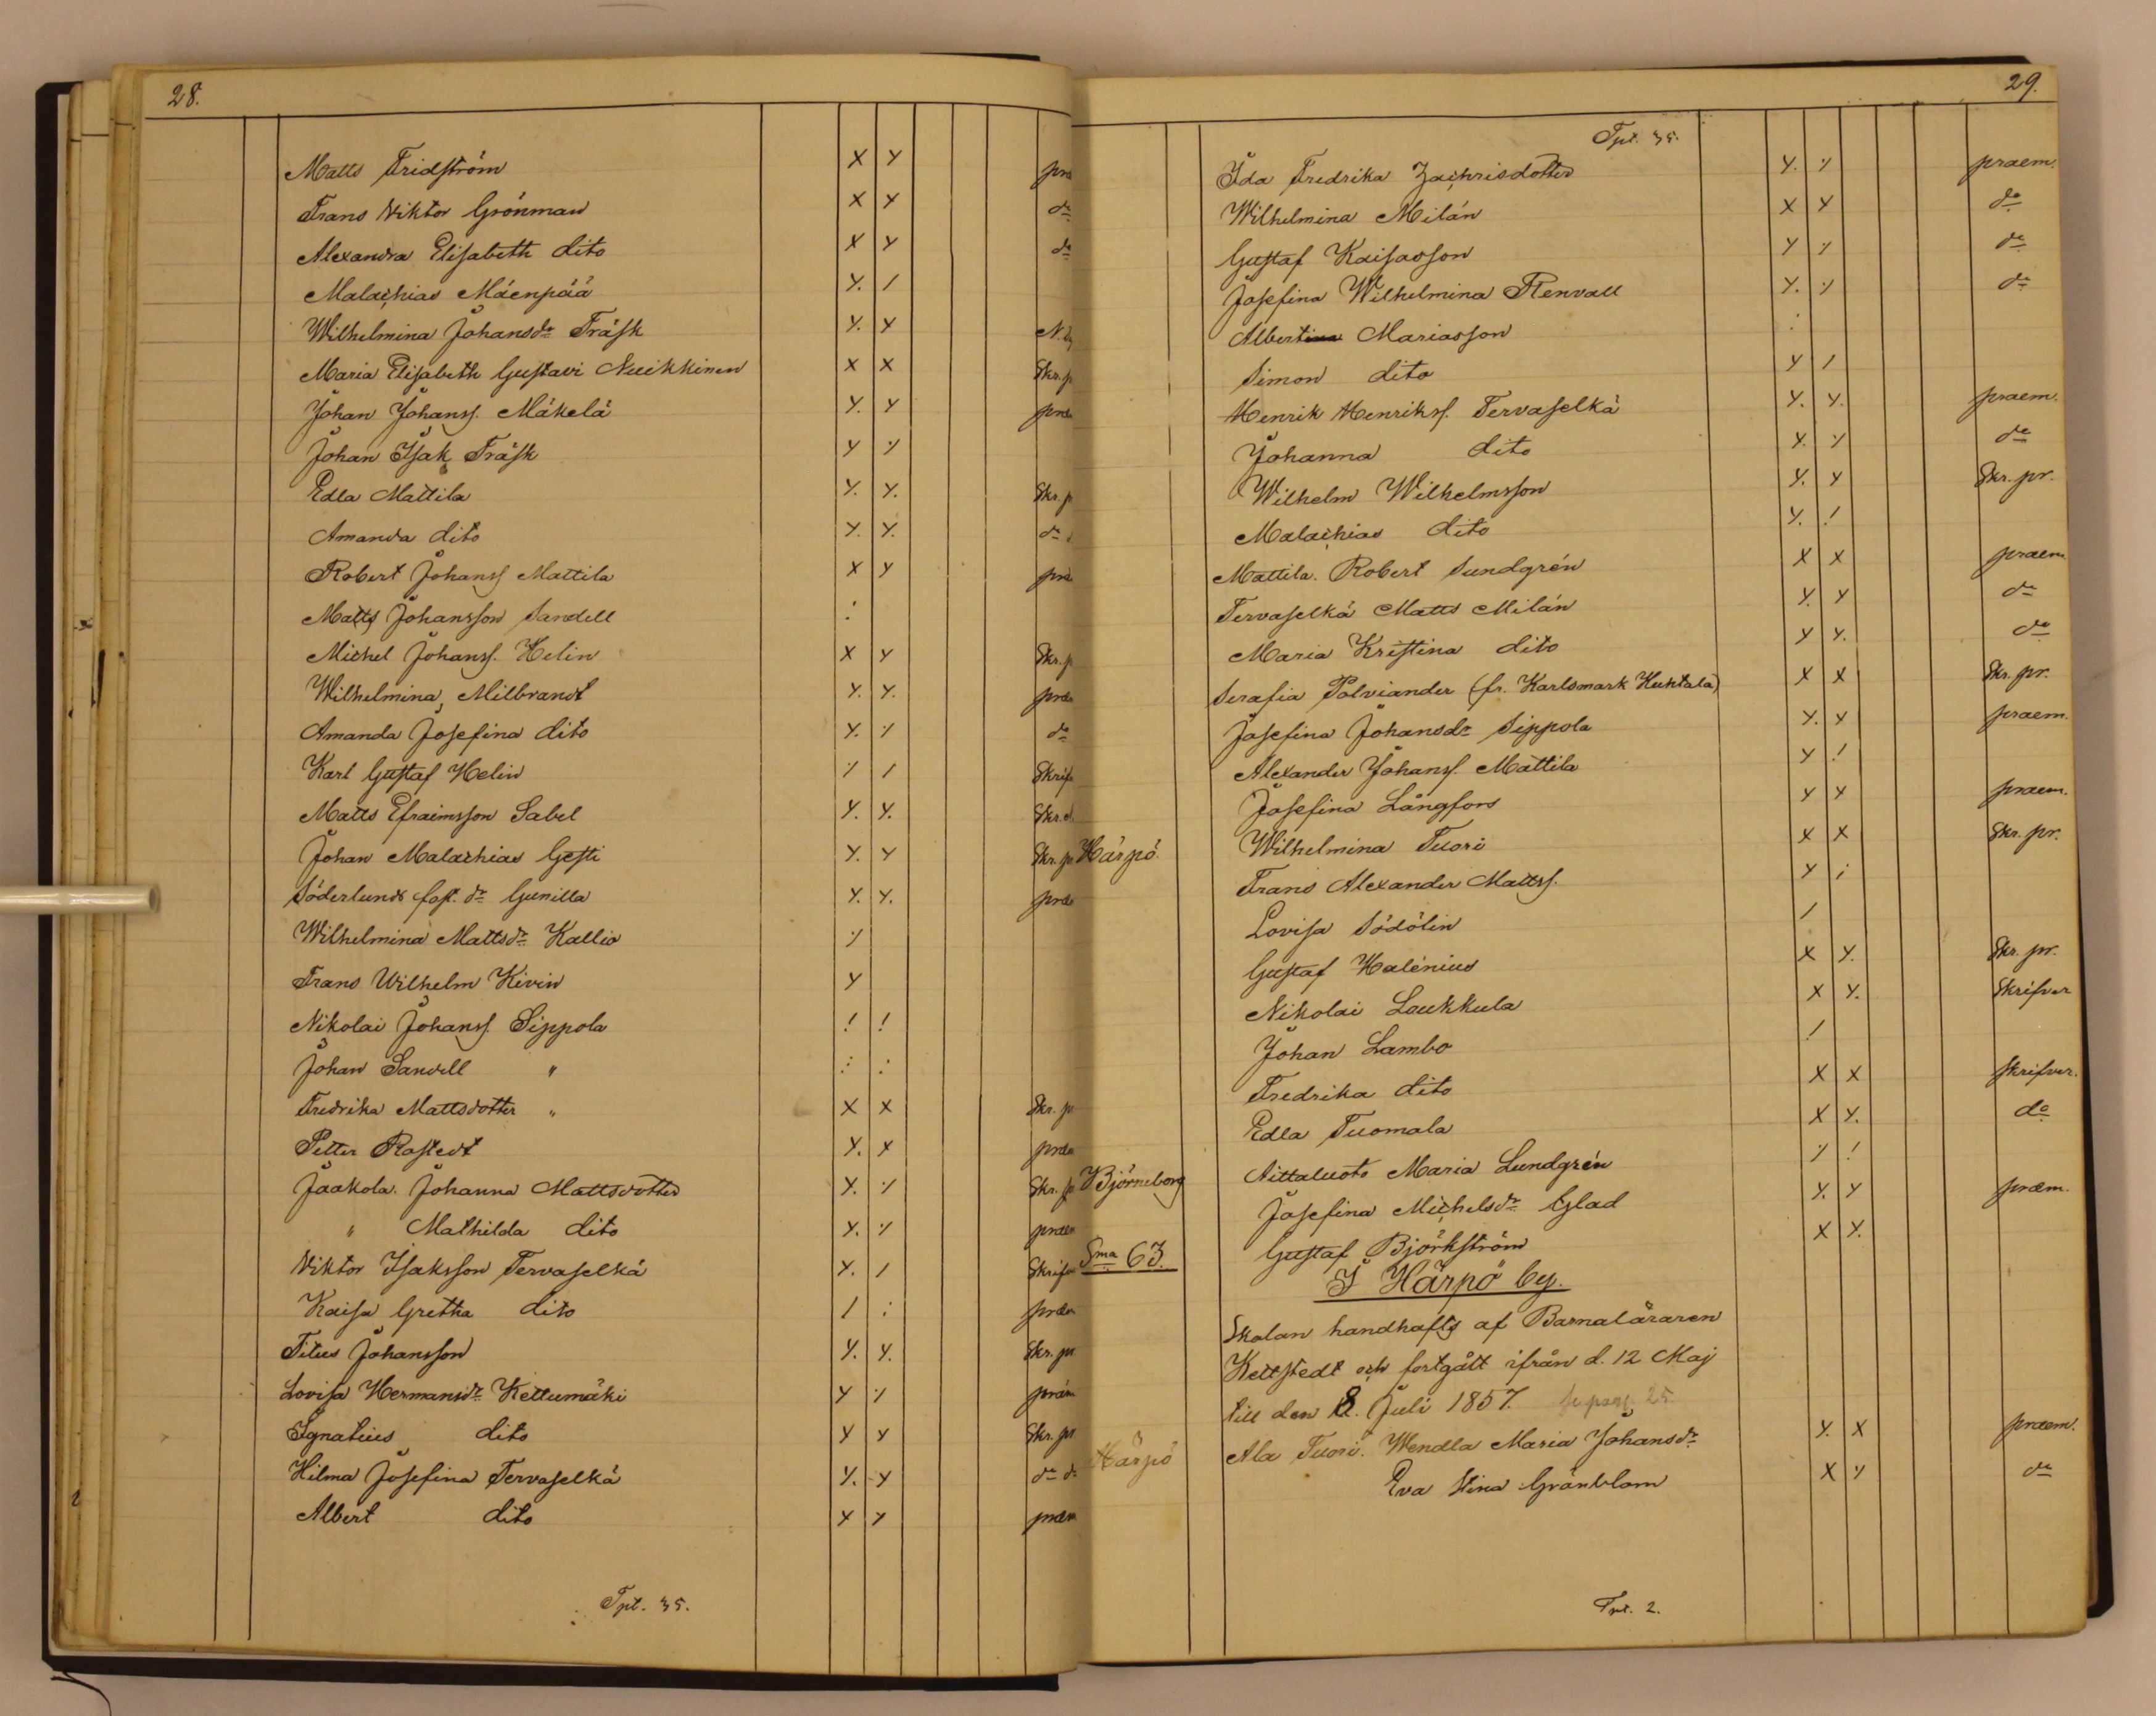 28.
Matts Fridström X Y
Frans Viktor Grönman X Y do
Alexandra Elisabeth dito X Y do
Malachias Mäenpää Y. /
Wilhelmina Johansdr Träsk Y. Y
Maria Elisabeth Gustavi Nuikkinen X X Skr. p
Johan Johanss. Mäkelä Y. Y
Johan Isak Träsk Y ·/
Edla Mattila Y. Y. Skr. p
Amanda dito Y. Y. do
Robert Johanss Mattila X Y
Matts Johansson Sandell :
Michel Johanss. Helin X Y Skr. p
Wilhelmina Milbrandt Y. Y.
Amanda Josefina dito Y. ·/ do
Karl Gustaf Helin ·/ / Skrif
Matts Efraimsson Sabel Y. Y. Skr.
Johan Malachias Gesti Y. Y Skr. p
Söderlunds fost. dr Gunilla Y. Y.
Wilhelmina Mattsdr Kallio ·/
Frans Wilhelm Kivin Y
Nikolai Johanss. Sippola ! !
Johan Sandell " : :
Fredrika Mattsdotter " X X Skr. p
Petter Rostedt Y. X
Jaakola. Johanna Mattsdotter Y. ·/ Skr. p
" Mathilda dito Y. ·/
Viktor Isaksson Tervaselkä Y. /
Kaisa Gretha dito / :
Titus Johansson Y. Y. Skr. pr
Lovisa Hermansdr Kettumäki Y ·/
Ignatius dito Y Y Skr. pr
Hilma Josefina Tervaselkä Y. Y do do
Albert dito X Y
Tpt. 35.
29.
Tpt. 35.
Ida Fredrika Zachrisdotter Y. ·/ praem.
Wilhelmina Milán X Y do
Gustaf Kaisasson Y ·/ do
Josefina Wilhelmina Renvall Y. ·/ do
Albertina Mariasson :
Simon dito Y /
Henrik Henrikss. Tervaselkä Y. Y. praem.
Johanna dito Y. ·/ do
Wilhelm Wilhelmsson Y. Y Skr. pr.
Malachias dito Y. !
Mattila. Robert Sundgrén X X praem
Tervaselkä Matts Milán Y. Y do
Maria Kristina dito Y Y. do
Serafia Polviander (fr. Karlsmark Huhtala) X X Skr. pr.
Josefina Johansdr Sippola Y. Y praem.
Alexander Johanss. Mattila Y !
Josefina Långfors Y Y praem.
Härpö Wilhelmina Tuori X X Skr. pr.
Frans Alexander Mattss. Y ;
Lovisa Södölin /
Gustaf Halénius X Y. Skr. pr.
Nikolai Laukkula X Y. Skrifver
Johan Lambo /
Fredrika dito X X skrifver.
Edla Tuomala X Y. do
Björneborg Aittaluoto Maria Lundgrén ·/ !
Josefina Michelsdr Glad Y. Y præm.
Sma 63. Gustaf Björkström X Y.
I Härpö by.
Skolan handhafts af Barnaläraren
Keltstedt och fortgått ifrån d. 12 Maj
till den 8. Juli 1857. 25
Härpö Ala Tuori. Wendla Maria Johansdr Y. X praem.
Eva Stina Grönblom X ·/ do
Tpt. 2.